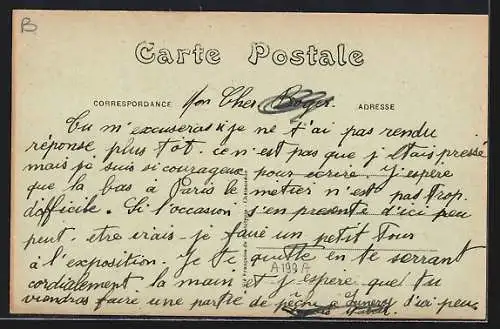 B
Carte Postale
CORRESPONDANCE Mon Cher Roger. ADRESSE
Tu m'excuseras si je ne t'ai pas rendu
réponse plus tôt. ce n'est pas que j'étais pressé
mais je suis si courageux pour écrire j'espère
que la bas à Paris le métier n'est pas trop
difficile. Si l'occasion s'en présente d'ici peu
peut. etre irais-je faire un petit Tour
à l'exposition. Je te quitte en te serrant
cordialement la main et j'espère que tu
viendras faire une partie de pêche à d'ici peu
A199A